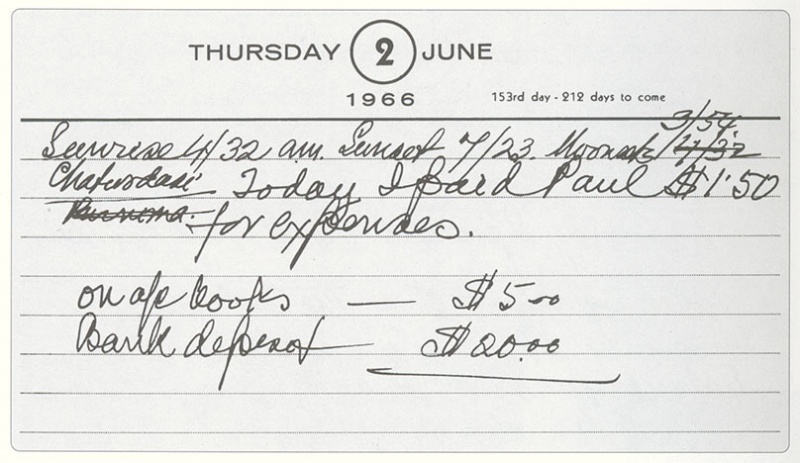 THURSDAY 2 JUNE
1966
153rd day - 212 days to come
3/54.
Sunrise 4/32 am. Sunset 7/23. Moonset 4/32
Chaturdasi Today I paid Paul $1.50
Purnima. for expenses.
on a/c books — $5-00
Bank deposit — $20.00